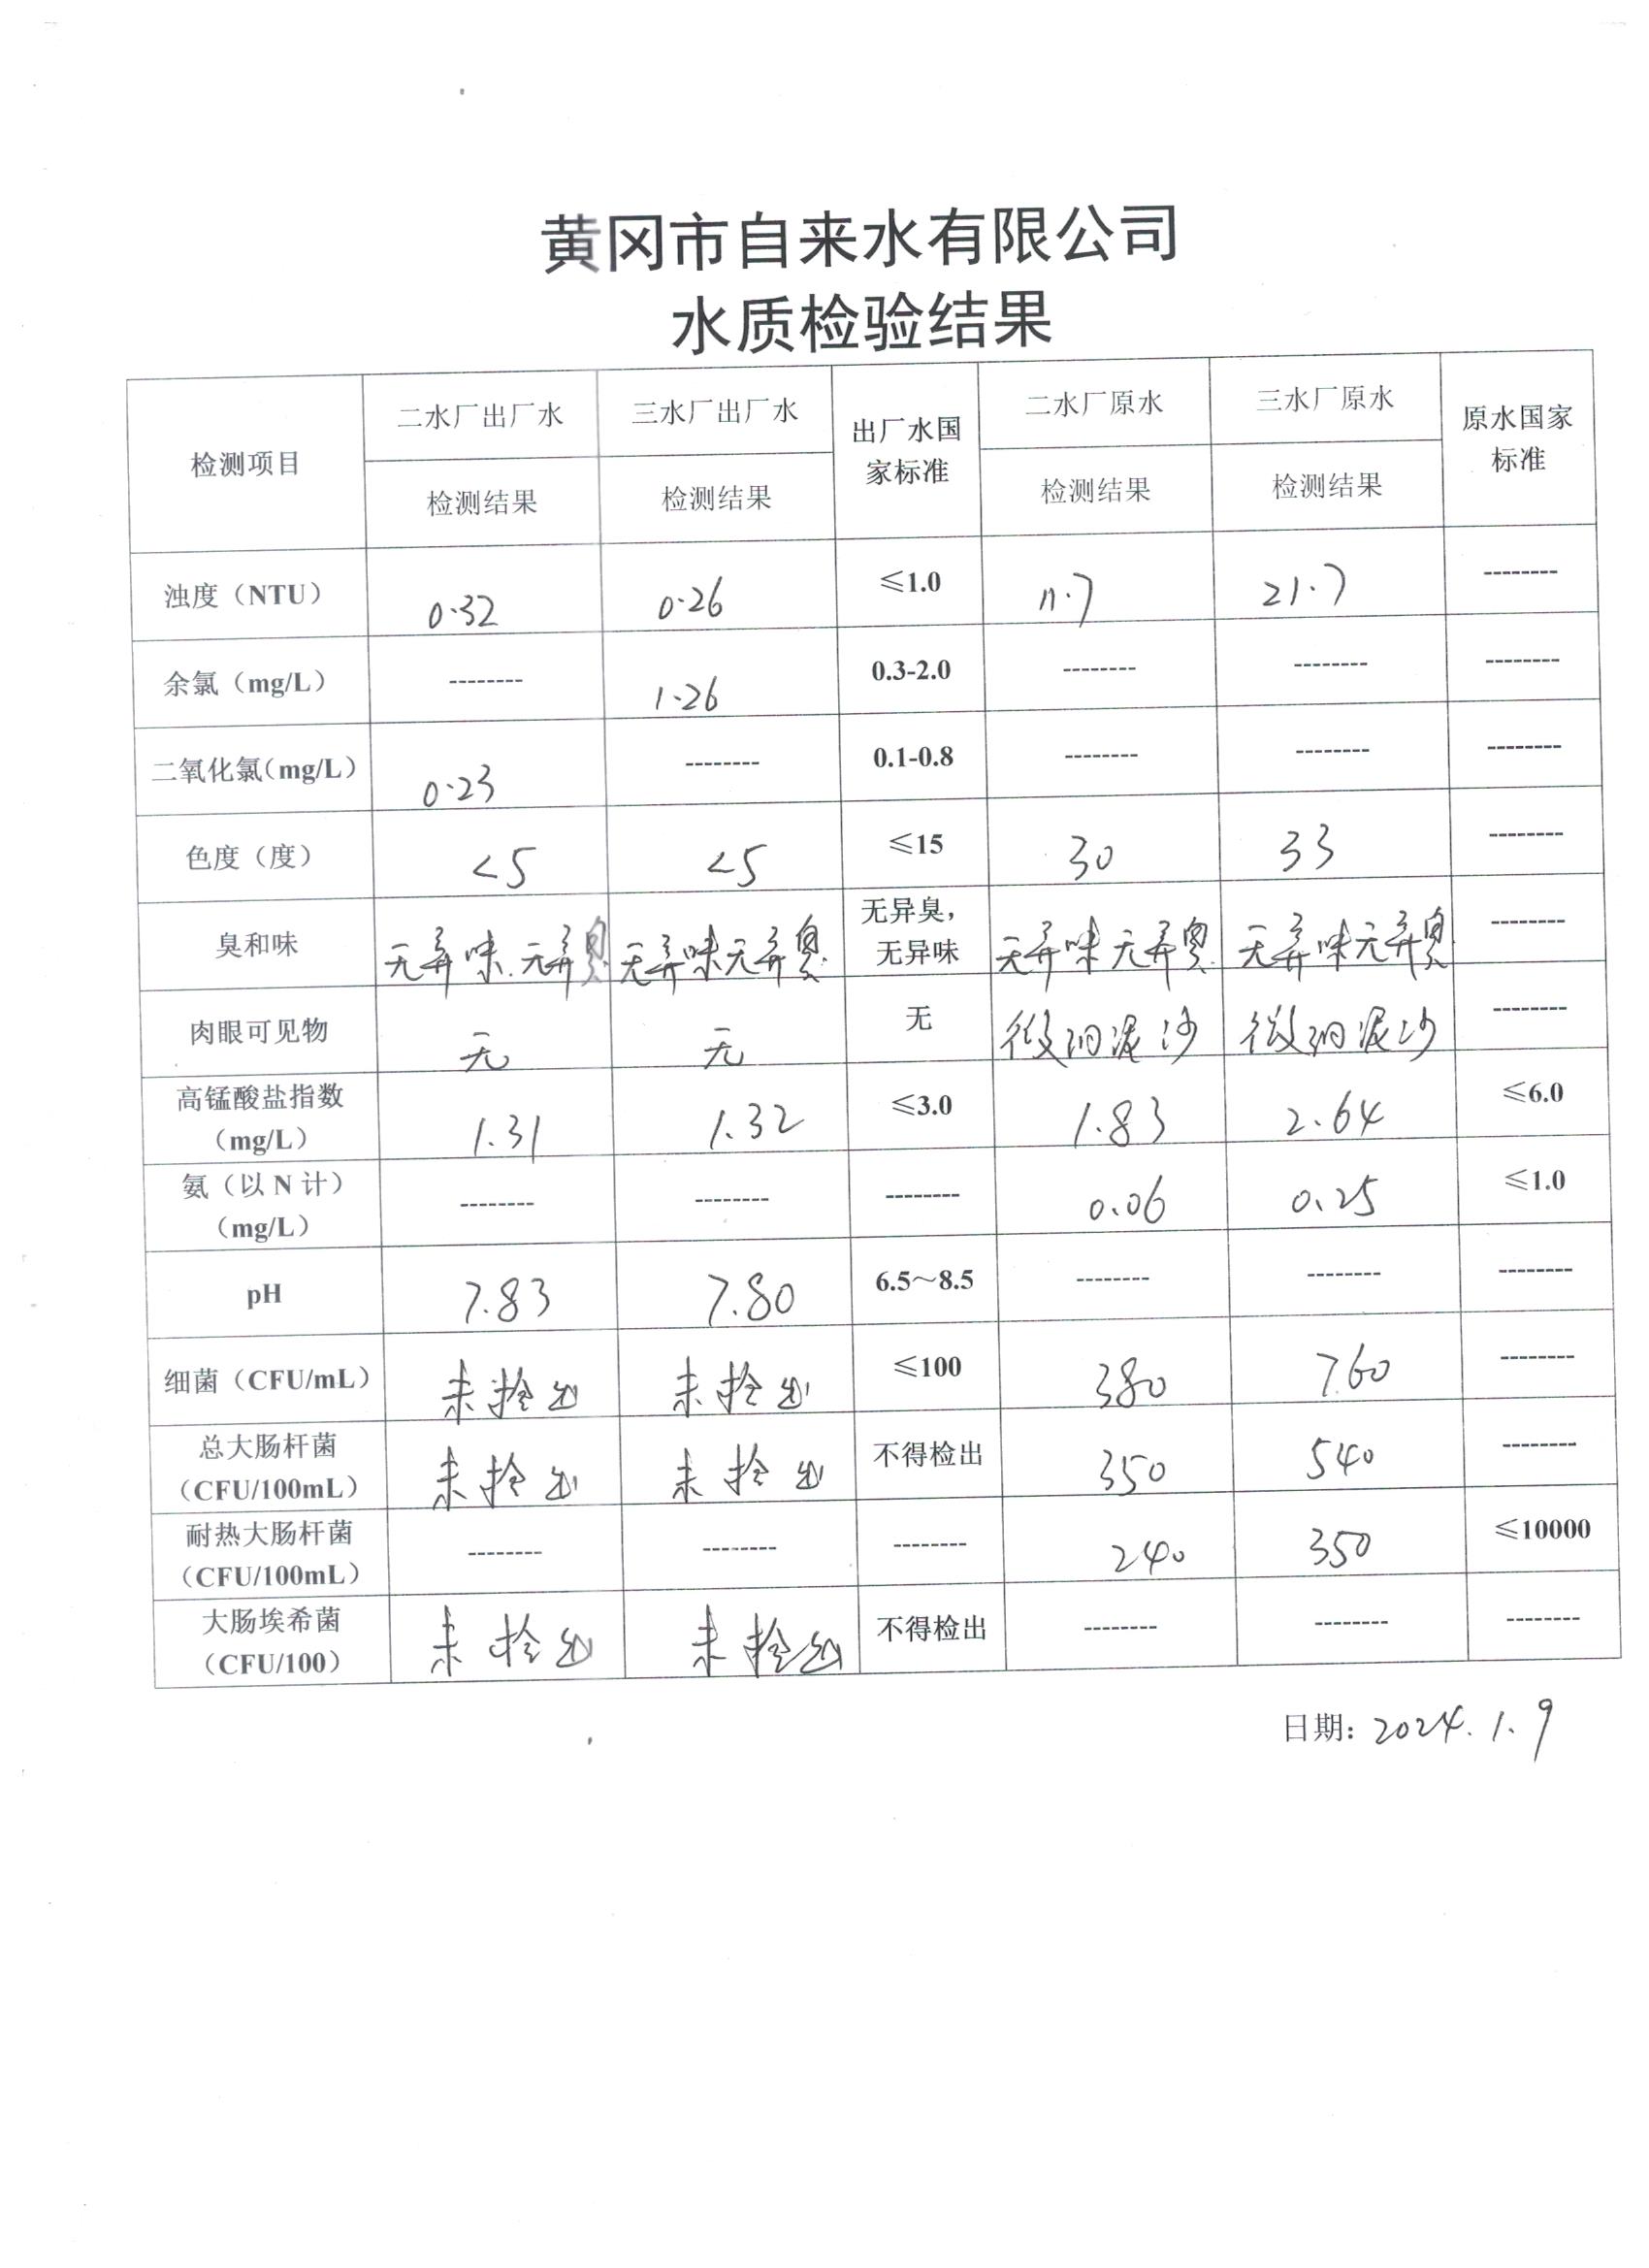 黄冈市自来水有限公司
水质检验结果
检测项目 二水厂出厂水 三水厂出厂水 出厂水国家标准 二水厂原水 三水厂原水 原水国家标准
检测结果 检测结果 检测结果 检测结果
浊度（NTU） 0.32 0.26 ≤1.0 11.7 21.7 --------
余氯（mg/L） -------- 1.26 0.3-2.0 -------- -------- --------
二氧化氯（mg/L） 0.23 -------- 0.1-0.8 -------- -------- --------
色度（度） <5 <5 ≤15 30 33 --------
臭和味 无异味.无异臭 无异味无异臭 无异臭，无异味 无异味无异臭 无异味无异臭 --------
肉眼可见物 无 无 无 微细泥沙 微细泥沙 --------
高锰酸盐指数（mg/L） 1.31 1.32 ≤3.0 1.83 2.64 ≤6.0
氨（以 N 计）（mg/L） -------- -------- -------- 0.06 0.25 ≤1.0
pH 7.83 7.80 6.5～8.5 -------- -------- --------
细菌（CFU/mL） 未检出 未检出 ≤100 380 760 --------
总大肠杆菌（CFU/100mL） 未检出 未检出 不得检出 350 540 --------
耐热大肠杆菌（CFU/100mL） -------- -------- -------- 240 350 ≤10000
大肠埃希菌（CFU/100） 未检出 未检出 不得检出 -------- -------- --------
日期: 2024.1.9